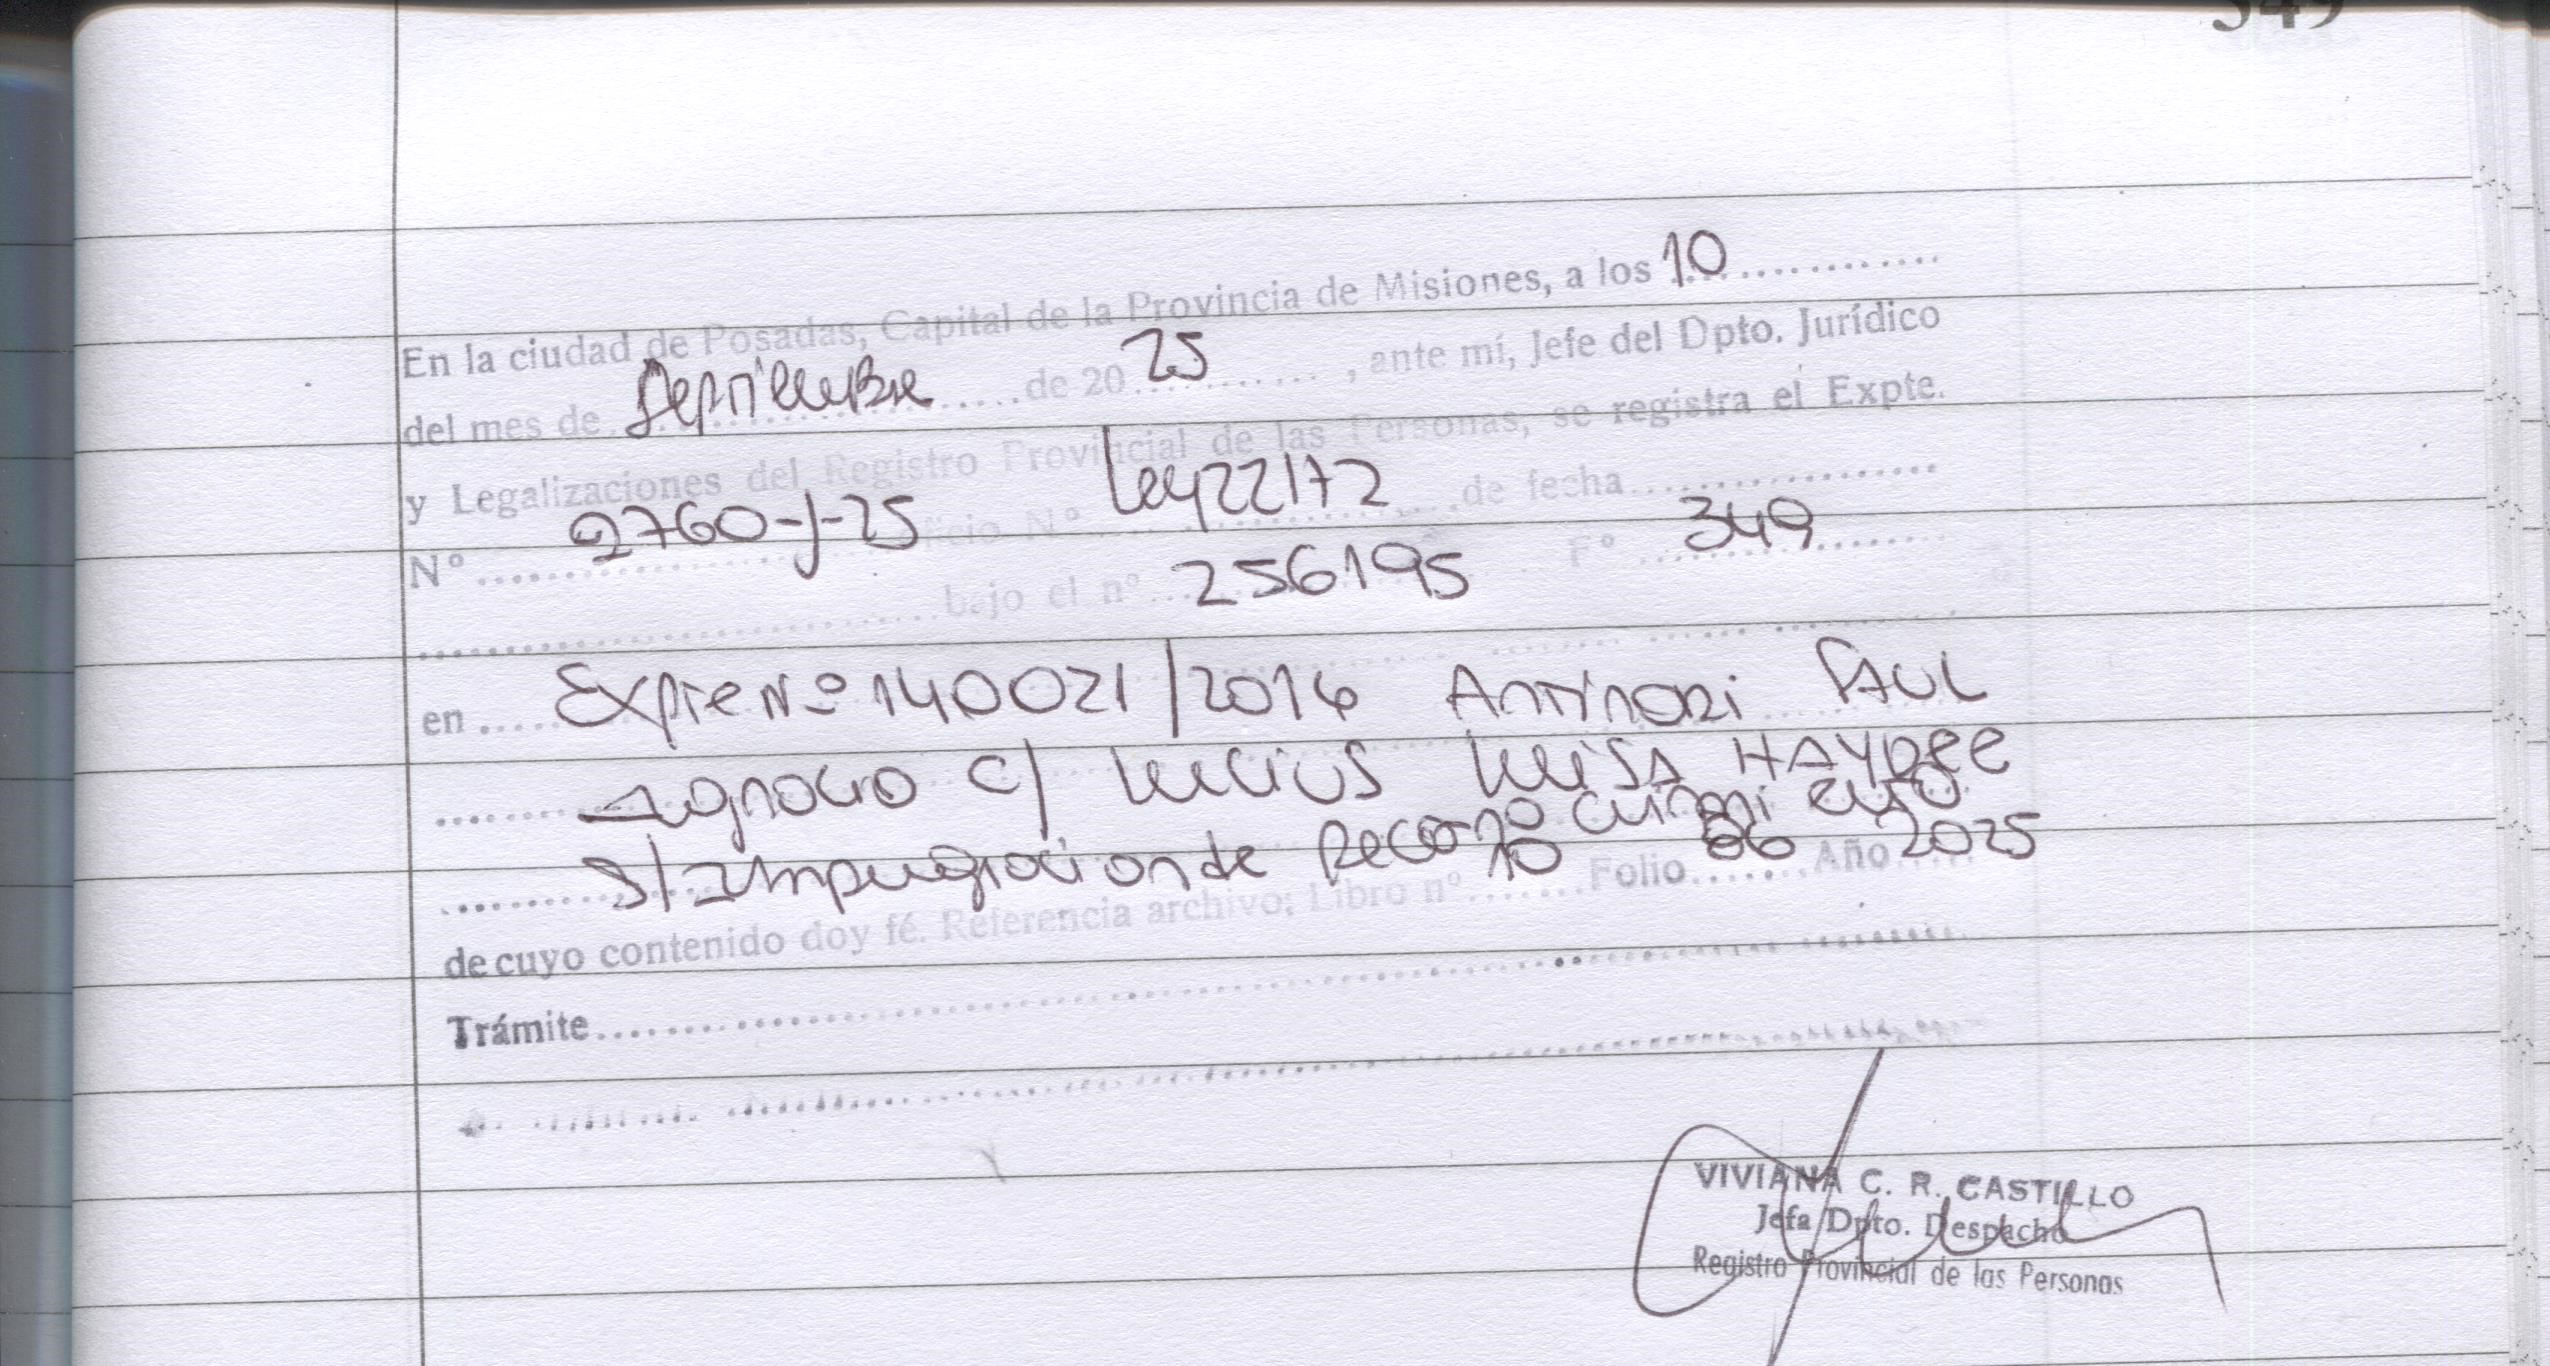 349
En la ciudad de Posadas, Capital de la Provincia de Misiones, a los 10
del mes de Septiembre de 20 25, ante mí, Jefe del Dpto. Jurídico
y Legalizaciones del Registro Provincial de las Personas, se registra el Expte.
Nº 2760-J-25 Oficio Nº Ley 22172 de fecha
bajo el nº 256195 Fº 349
en Expte Nº 140021/2016 Antinori
c/ Luisa HAYDEE
S/ Impugnacion de Reconocimiento
de cuyo contenido doy fé. Referencia archivo; Libro nº 10 Folio 86 Año 2025
Trámite
VIVIANA C. R. CASTILLO
Jefa Dpto. Despacho
Registro Provincial de las Personas